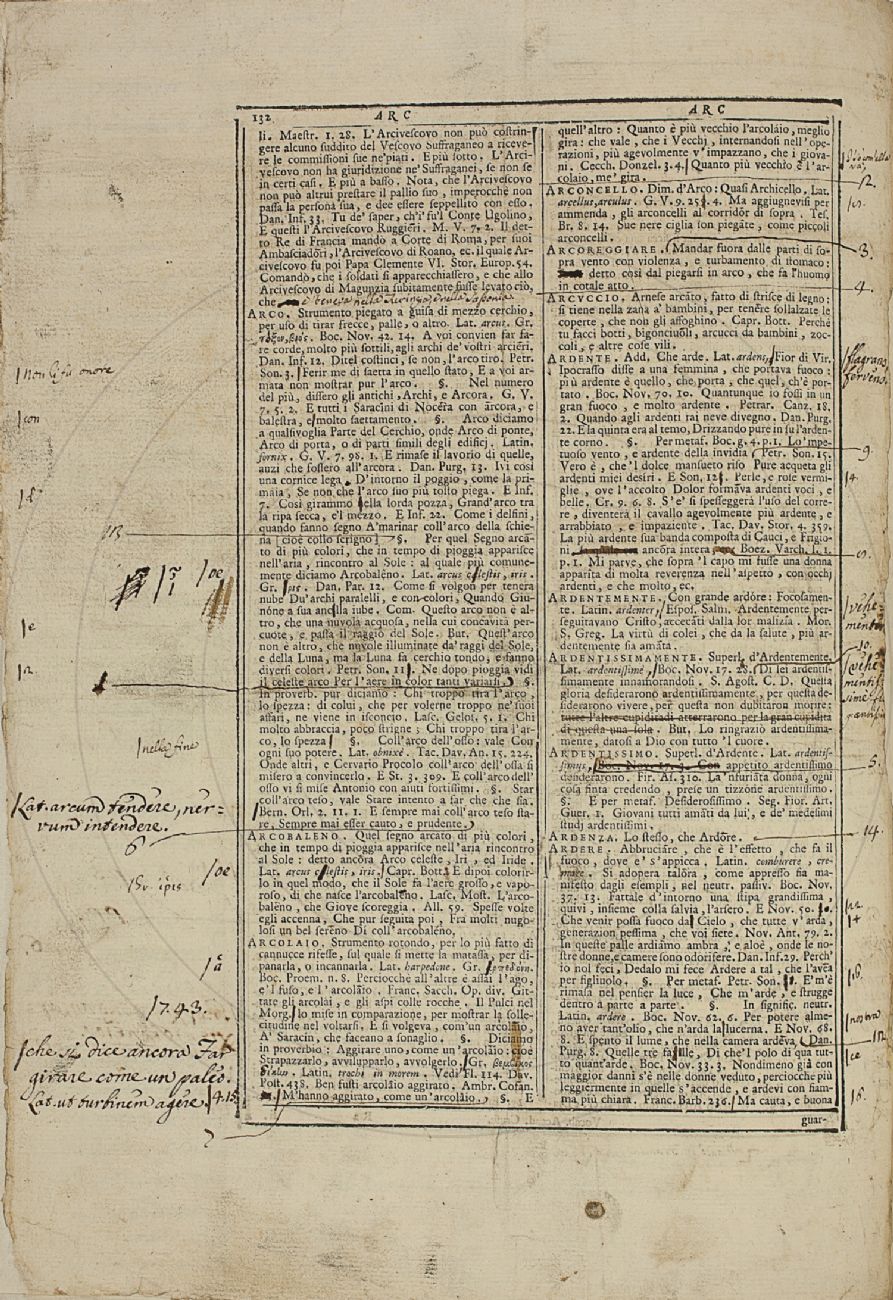 132 ARC
li. Maestr. 1. 28. L'Arcivescovo non può costrin-
gere alcuno suddito del Vescovo Suffraganeo a riceve-
re le commissioni sue ne'piati. E più sotto. L'Arci-
vescovo non ha giuridizione ne' Suffraganei, se non se
in certi casi. E più a basso. Nota, che l'Arcivescovo
non può altrui prestare il pallio suo, imperocchè non
passa la persona sua, e dee essere seppellito con esso.
Dan. Inf. 33. Tu de' saper, ch'i' fu'l Conte Ugolino,
E questi l'Arcivescovo Ruggieri. M. V. 7. 2. Il det-
to Re di Francia mandò a Corte di Roma, per suoi
Ambasciadori, l'Arcivescovo di Roano, ec. il quale Ar-
civescovo fu poi Papa Clemente VI. Stor. Europ. 54.
Comandò, che i soldati si apparecchiassero, e che allo
Arcivescovo di Magunzia subitamente fusse levato ciò,
che
ARCO. Strumento piegato a guisa di mezzo cerchio,
per uso di tirar frecce, palle, o altro. Lat. arcus. Gr.
Boc. Nov. 42. 14. A voi convien far fa-
re corde, molto più sottili, agli archi de' vostri arcieri.
Dan. Inf. 12. Ditel costinci, se non, l'arco tiro. Petr.
Son. 3. Ferir me di saetta in quello stato, E a voi ar-
mata non mostrar pur l'arco. §. Nel numero
del più, dissero gli antichi, Archi, e Arcora. G. V.
7. 5. 2. E tutti i Saracini di Nocera con arcora, e
balestra, e molto saettamento. §. Arco diciamo
a qualsivoglia Parte del Cerchio, onde Arco di ponte,
Arco di porta, o di parti simili degli edifici. Latin.
fornix. G. V. 7. 98. 1. E rimase il lavorio di quelle,
anzi che fossero all'arcora. Dan. Purg. 13. Ivi così
una cornice lega D'intorno il poggio, come la pri-
maia, Se non che l'arco suo più tosto piega. E Inf.
7. Così girammo della lorda pozza, Grand'arco tra
la ripa secca, e'l mezzo. E Inf. 22. Come i delfini,
quando fanno segno A'marinar coll'arco della schie-
na [cioè collo scrigno] §. Per quel Segno arca-
to di più colori, che in tempo di pioggia apparisce
nell'aria, rincontro al Sole: al quale più comune-
mente diciamo Arcobaléno. Lat. arcus cælestis, iris.
Gr. Dan. Par. 12. Come si volgon per tenera
nube Du'archi paralelli, e concolori, Quando Giu-
nóne a sua ancilla iube. Com. Questo arco non è al-
tro, che una nuvola acquosa, nella cui concavità per-
cuote, e passa il raggio del Sole. But. Quest'arco
non è altro, che nuvole illuminate da' raggi del Sole,
e della Luna, ma la Luna fa cerchio tondo, e fanno
diversi colori. Petr. Son. Ne dopo pioggia vidi
il celeste arco Per l'aere in color tanti variarsi. §.
In proverb. pur diciamo: Chi troppo tira l'arco,
lo spezza: di colui, che per volerne troppo ne' suoi
affari, ne viene in isconcio. Lasc. Gelos. 5. 1. Chi
molto abbraccia, poco strigne; Chi troppo tira l'ar-
co, lo spezza §. Coll'arco dell'osso: vale Con
ogni suo potere. Lat. obnixè. Tac. Dav. An. 15. 224.
Onde altri, e Cervario Procolo coll'arco dell'ossa si
misero a convincerlo. E St. 3. 309. E coll'arco dell'
osso vi si mise Antonio con aiuti fortissimi. §. Star
coll'arco teso, vale Stare intento a far che che sia.
Bern. Orl. 2. 11. 1. E sempre mai coll'arco teso sta-
re, Sempre mai esser cauto, e prudente.
ARCOBALENO. Quel segno arcato di più colori,
che in tempo di pioggia apparisce nell'aria rincontro
al Sole: detto ancóra Arco celeste, Iri, ed Iride.
Lat. arcus cælestis, iris. Capr. Bott. E dipoi colorir-
lo in quel modo, che il Sole fa l'aere grosso, e vapo-
roso, di che nasce l'arcobaléno. Lasc. Most. L'arco-
baléno, che Giove scoreggia. All. 59. Spesse volte
egli accenna, Che pur seguita poi, Fra molti nugo-
losi un bel sereno Di coll'arcobaléno.
ARCOLAIO. Strumento rotondo, per lo più fatto di
cannucce rifesse, sul quale si mette la matassa, per di-
panarla, o incannarla. Lat. harpedone. Gr.
Boc. Proem. n. 8. Perciocchè all'altre è assai l'ago,
e'l fuso, e l'arcolaio. Franc. Sacch. Op. div. Git-
tare gli arcolai, e gli aspi colle rocche. Il Pulci nel
Morg. lo mise in comparazione, per mostrar la solle-
citudine nel voltarsi. E si volgeva, com'un arcolaio,
A' Saracin, che faceano a sonaglio. §. Diciamo
in proverbio: Aggirare uno, come un'arcolaio: cioè
Strapazzarlo, avvilupparlo, avvolgerlo. Gr.
Latin. trochi in morem. Vedi Fl. 114. Dav.
Post. 438. Ben fusti arcolaio aggirato. Ambr. Cofan.
M'hanno aggirato, come un'arcolaio. §. E
ARC
quell'altro: Quanto è più vecchio l'arcolaio, meglio
gira: che vale, che i Vecchj, internandosi nell'ope-
razioni, più agevolmente v'impazzano, che i giova-
ni. Cecch. Donzel. 3. 4. Quanto più vecchio è l'ar-
colaio, me' gira.
ARCONCELLO. Dim. d'Arco: Quasi Archicello. Lat.
arcellus, arculus. G. V. 9. 25. 4. Ma aggiugnevisi per
ammenda, gli arconcelli al corridór di sopra. Tes.
Br. 8. 14. Sue nere ciglia son piegate, come piccoli
arconcelli.
ARCOREGGIARE. Mandar fuora dalle parti di so-
pra vento con violenza, e turbamento di stomaco:
detto così dal piegarsi in arco, che fa l'huomo
in cotale atto.
ARCUCCIO. Arnese arcato, fatto di strisce di legno:
si tiene nella zana a' bambini, per tenére sollalzate le
coperte, che non gli affoghino. Capr. Bott. Perchè
tu facci botti, bigonciuoli, arcucci da bambini, zoc-
coli, e altre cose vili.
ARDENTE. Add. Che arde. Lat. ardens. Fior di Vir.
Ipocrasso disse a una femmina, che portava fuoco:
più ardente è quello, che porta, che quel, ch'è por-
tato. Boc. Nov. 70. 10. Quantunque io fossi in un
gran fuoco, e molto ardente. Petrar. Canz. 18.
2. Quando agli ardenti rai neve divegno. Dan. Purg.
22. E la quinta era al temo, Drizzando pure in su l'arden-
te corno. §. Per metaf. Boc. g. 4. p. 1. Lo 'mpe-
tuoso vento, e ardente della invidia Petr. Son. 15.
Vero è, che 'l dolce mansueto riso Pure acqueta gli
ardenti miei desiri. E Son. 12. Perle, e rose vermi-
glie, ove l'accolto Dolor formava ardenti voci, e
belle. Cr. 9. 6. 8. S'e' si spesseggerà l'uso del corre-
re, diventerà il cavallo agevolmente più ardente, e
arrabbiato, e impaziente. Tac. Dav. Stor. 4. 359.
La più ardente sua banda composta di Cauci, e Frigio-
ni, ancóra intera Boez. Varch. l. 1.
p. 1. Mi parve, che sopra 'l capo mi fusse una donna
apparita di molta reverenza nell'aspetto, con occhj
ardenti, e che molto, ec.
ARDENTEMENTE. Con grande ardóre: Focosamen-
te. Latin. ardenter. Espos. Salm. Ardentemente per-
seguitavano Cristo, accecati dalla lor malizia. Mor.
S. Greg. La virtù di colei, che da la salute, più ar-
dentemente sia amata.
ARDENTISSIMAMENTE. Superl. d'Ardentemente.
Lat. ardentissimè. Boc. Nov. 17. 28. Di lei ardentis-
simamente innamorandosi. S. Agost. C. D. Questa
gloria desiderarono ardentissimamente, per questa de-
siderarono vivere, per questa non dubitaron morire:
tutte l'altre cupiditadi atterrarono per la gran cupidita
di questa una sola. But. Lo ringraziò ardentissima-
mente, datosi a Dio con tutto 'l cuore.
ARDENTISSIMO. Superl. d'Ardente. Lat. ardentis-
simus. Boc. Nov. 17. 9. Con appetito ardentissimo
desiderarono. Fir. As. 310. La 'nfuriata donna, ogni
cosa finta credendo, prese un tizzóne ardentissimo.
§. E per metaf. Desiderosissimo. Seg. Fior. Art.
Guer. 1. Giovani tutti amati da lui, e de' medesimi
studj ardentissimi.
ARDENZA. Lo stesso, che Ardóre.
ARDERE. Abbruciáre, che è l'effetto, che fa il
fuoco, dove e' s'appicca. Latin. comburere, cre-
mare. Si adopera talóra, come appresso fia ma-
nifesto dagli esempli, nel neutr. passiv. Boc. Nov.
37. 13. Fattale d'intorno una stipa grandissima,
quivi, insieme colla salvia, l'arsero. E Nov. 50.
Che venir possa fuoco da Cielo, che tutte v'arda,
generazion pessima, che voi siete. Nov. Ant. 79. 2.
In queste palle ardiámo ambra, e aloè, onde le no-
stre donne, e camere sono odorifere. Dan. Inf. 29. Perch'
io nol feci, Dedalo mi fece Ardere a tal, che l'avea
per figliuolo. §. Per metaf. Petr. Son. E'm'è
rimasa nel pensier la luce, Che m'arde, e strugge
dentro a parte a parte. §. In signific. neutr.
Latin. ardere. Boc. Nov. 62. 6. Per potere alme-
no aver tant'olio, che n'arda la lucerna. E Nov. 68.
8. E spento il lume, che nella camera ardeva. Dan.
Purg. 8. Quelle tre facelle, Di che'l polo di qua tut-
to quant'arde. Boc. Nov. 33. 3. Nondimeno già con
maggior danni s'è nelle donne veduto, perciocchè più
leggiermente in quelle s'accende, e ardevi con fiam-
ma più chiara. Franc. Barb. 236. Ma cauta, e buona
guar-
con
nella fine
Lat. arcum tendere, ner-
vum intendere.
6
oe
à
1743.
che si dice ancora Far
girare come un paleo.
Lat. ut turbinem agere.
3.
4.
flagrans,
fervens.
9.
14.
10.
5.
14.
16.
nostra